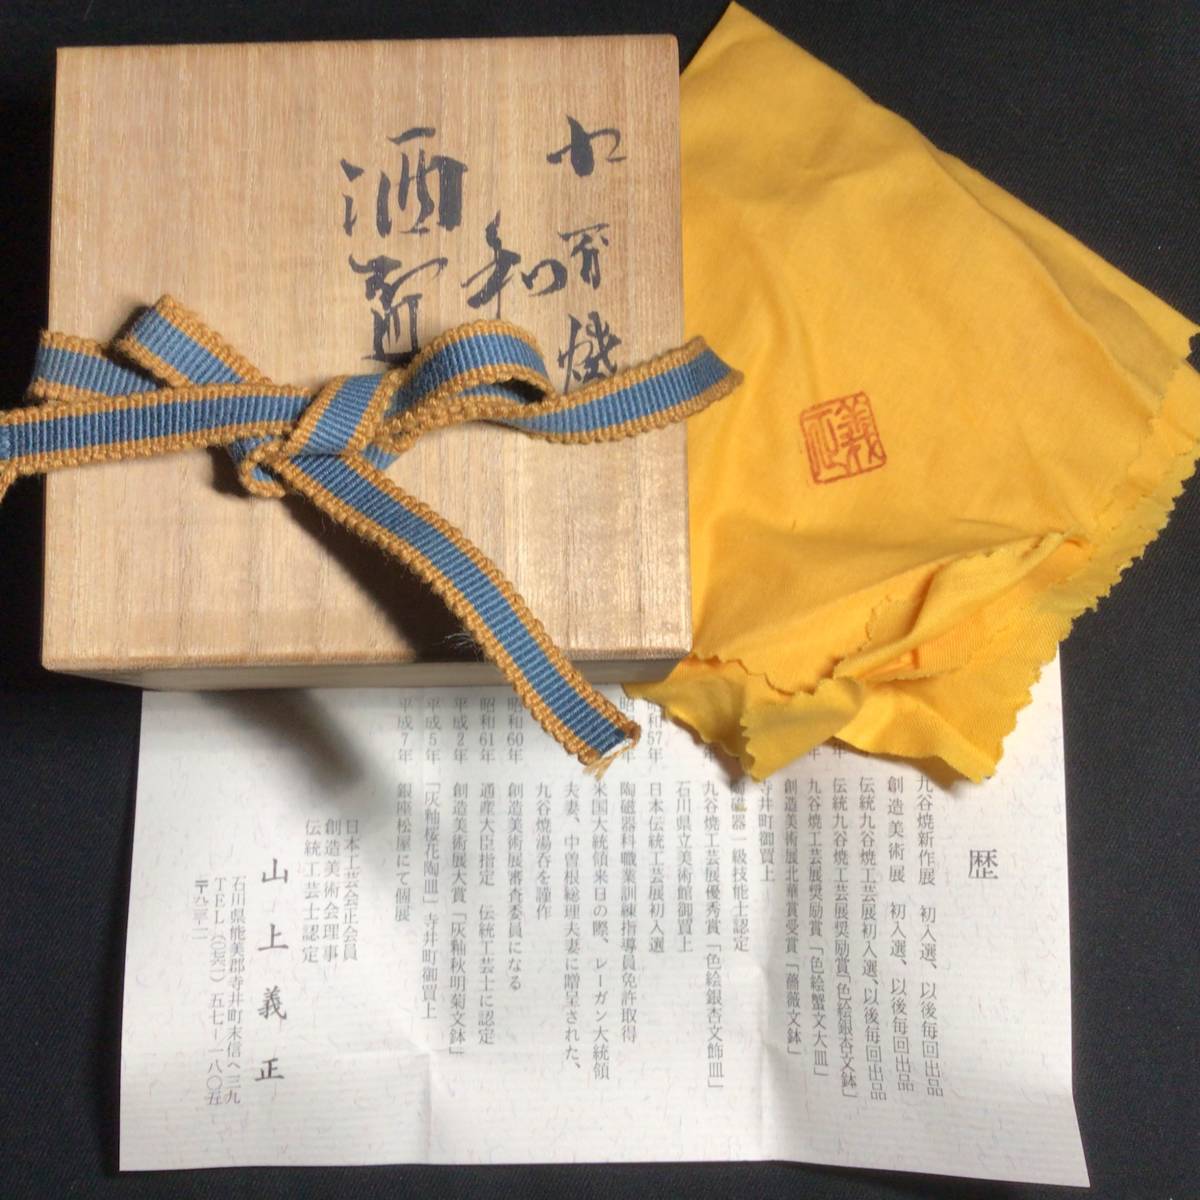 九谷焼
和
酒
義正
歴
九谷焼新作展 初入選、以後毎回出品
創造美術展 初入選、以後毎回出品
伝統九谷焼工芸展初入選、以後毎回出品
伝統九谷焼工芸展奨励賞「色絵銀杏文鉢」
九谷焼工芸展奨励賞「色絵蟹文大皿」
創造美術展北華賞受賞「薔薇文鉢」
寺井町御買上
磁器一級技能士認定
年 九谷焼工芸展優秀賞「色絵銀杏文飾皿」
石川県立美術館御買上
昭和57年 日本伝統工芸展初入選
昭 年 陶磁器科職業訓練指導員免許取得
米国大統領来日の際、レーガン大統領
夫妻、中曽根総理夫妻に贈呈された、
九谷焼湯呑を謹作
昭和60年 創造美術展審査委員になる
昭和61年 通産大臣指定 伝統工芸士に認定
平成2年 創造美術展大賞「灰釉秋明菊文鉢」
平成5年 「灰釉桜花陶皿」寺井町御買上
平成7年 銀座松屋にて個展
日本工芸会正会員
創造美術会理事
伝統工芸士認定
山上義正
石川県能美郡寺井町末信ヘ三九
TEL(〇七六一)五七-一八〇五
〒九二三-一一